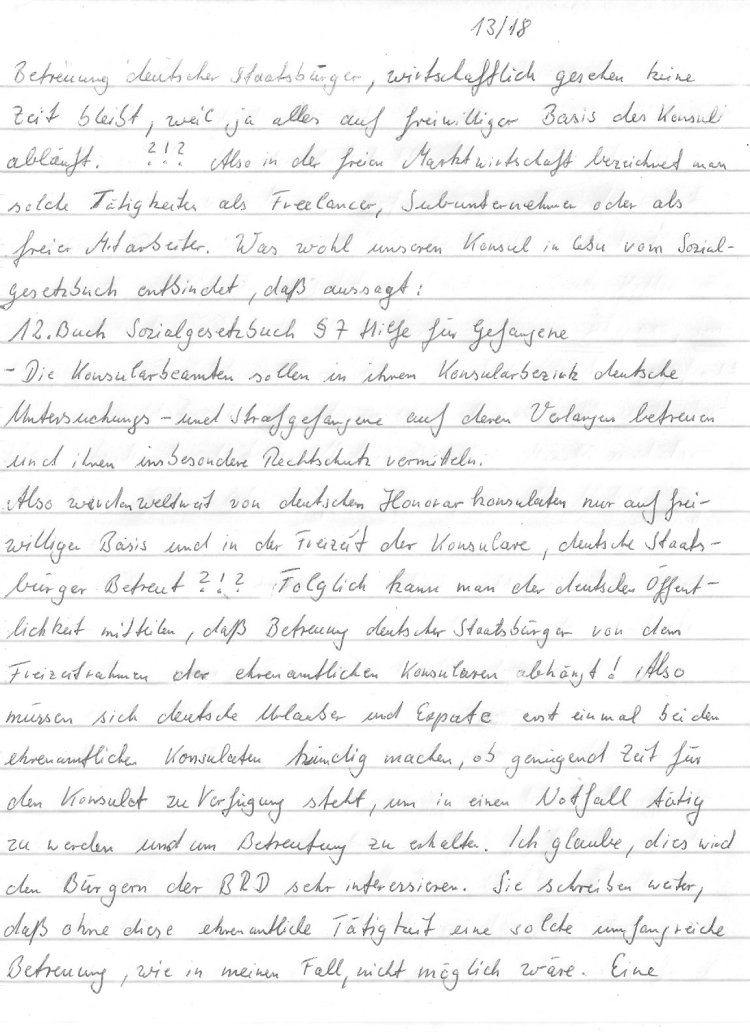 13/18
Betreuung deutscher Staatsbürger, wirtschafftlich gesehen keine
Zeit bleibt, weil ja alles auf freiwilliger Basis des Konsuls
abläuft. ?!? Also in der freien Marktwirtschaft bezeichnet man
solche Tätigkeiten als Freelancer, Subunternehmer oder als
freier Mitarbeiter. Was wohl unseren Konsul in Cebu vom Sozial-
gesetzbuch entbindet, daß aussagt:
12. Buch Sozialgesetzbuch § 7 Hilfe für Gefangene
- Die Konsularbeamten sollen in ihrem Konsularbezirk deutsche
Untersuchungs- und Strafgefangene auf deren Verlangen betreuen
und ihnen insbesondere Rechtschutz vermitteln.
Also werden weltweit von deutschen Honorarkonsulaten nur auf frei-
williger Basis und in der Freizeit der Konsulare, deutsche Staats-
bürger Betreut ?!? Folglich kann man der deutschen Öffent-
lichkeit mitteilen, daß Betreuung deutscher Staatsbürger von dem
Freizeitrahmen der ehrenamtlichen Konsularen abhängt! Also
müssen sich deutsche Urlauber und Expats erst einmal bei den
ehrenamtlichen Konsulaten kündig machen, ob genügend Zeit für
den Konsulat zu Verfügung steht, um in einen Notfall tätig
zu werden und um Betreutung zu erhalten. Ich glaube, dies wird
den Bürgern der BRD sehr interessieren. Sie schreiben weiter,
daß ohne diese ehrenamtliche Tätigkeit eine solche umfangreiche
Betreuung, wie in meinen Fall, nicht möglich wäre. Eine